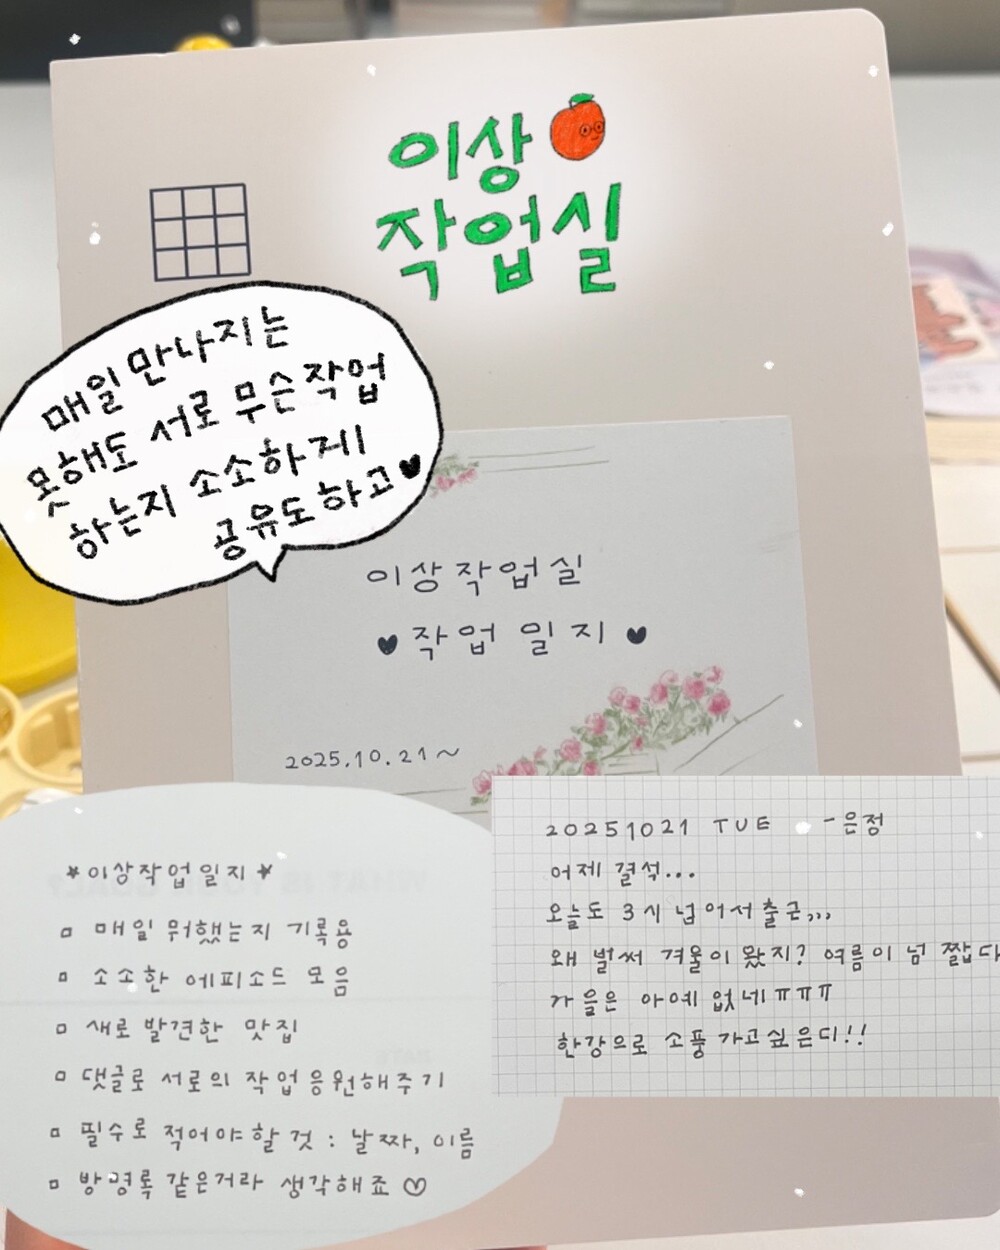 이상
작업실
매일 만나지는
못해도 서로 무슨작업
하는지 소소하게
공유도하고♥
이상작업실
♥ 작업 일지 ♥
2025.10.21~
*이상작업일지*
▫ 매일 뭐했는지 기록용
▫ 소소한 에피소드 모음
▫ 새로 발견한 맛집
▫ 댓글로 서로의 작업 응원해주기
▫ 필수로 적어야할 것 : 날짜, 이름
▫ 방명록 같은거라 생각해죠 ♡
20251021 TUE -은정
어제 결석...
오늘도 3시 넘어서출근,,,
왜 벌써 겨울이 왔지? 여름이 넘 짧다
가을은 아예 없네ㅠㅠㅠ
한강으로 소풍 가고싶은디!!